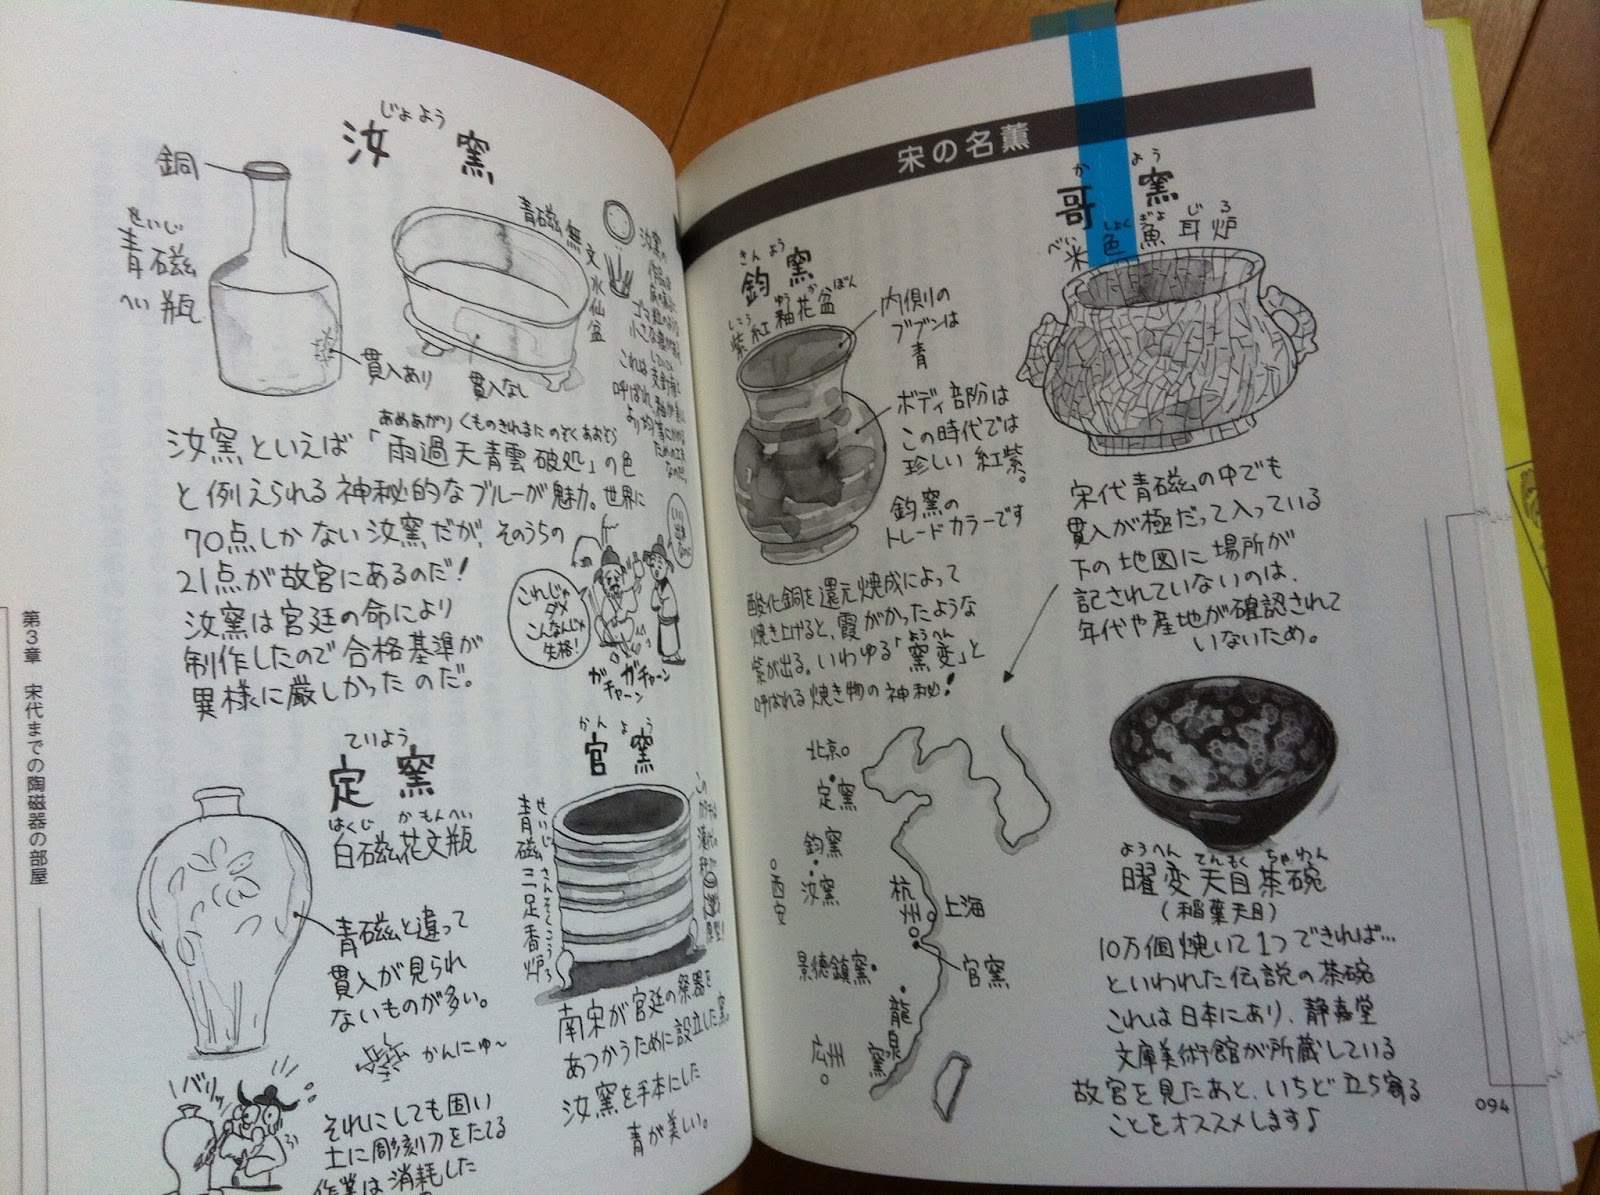 第3章 宋代までの陶磁器の部屋
じょよう
汝窯
銅
せいじ
青磁
へい瓶
貫入あり
青磁無文水仙盆
貫入なし
汝窯の
ゴマ
小さな
これは
呼ばれ、
より均等に
ための工夫
なのだ。
あめあがりくものきれまにのぞくあおぞら
汝窯といえば「雨過天青雲破処」の色
と例えられる神秘的なブルーが魅力。世界に
70点しかない汝窯だが、そのうちの
21点が故宮にあるのだ!
汝窯は宮廷の命により
制作したので合格基準が
異様に厳しかったのだ。
これじゃ
ダメ
こんなんじゃ
失格!
ガチャーン
ガチャーン
ていよう
定窯
はくじ かもんへい
白磁花文瓶
青磁と違って
貫入が見られ
ないものが多い。
かんにゅ〜
バリッ
それにしても固い
土に彫刻刀をたてる
作業は消耗した
かんよう
官窯
せいじ さんそくこうろ
青磁三足香炉
南宋が宮廷の祭器を
あつかうために設立した窯。
汝窯を手本にした
青が美しい。
宋の名薫
きんよう
鈞窯
しこう ゆう か ぼん
紫紅釉花盆
内側の
ブブンは
青
ボディ部分は
この時代では
珍しい紅紫。
鈞窯の
トレードカラーです
酸化銅を還元焼成によって
焼き上げると、霞がかったような
紫が出る。いわゆる「窯変」と
ようへん
呼ばれる焼き物の神秘!
かよう
哥窯
べいしょくぎょじろ
米色魚耳炉
宋代青磁の中でも
貫入が極だって入っている
下の地図に場所が
記されていないのは、
年代や産地が確認されて
いないため。
北京
定窯
鈞窯
汝窯
西安
杭州
上海
官窯
景徳鎮窯
龍泉窯
広州
ようへんてんもくちゃわん
曜変天目茶碗
(稲葉天目)
10万個焼いて1つできれば…
といわれた伝説の茶碗
これは日本にあり、静嘉堂
文庫美術館が所蔵している
故宮を見たあと、いちど立ち寄る
ことをオススメします♪
094